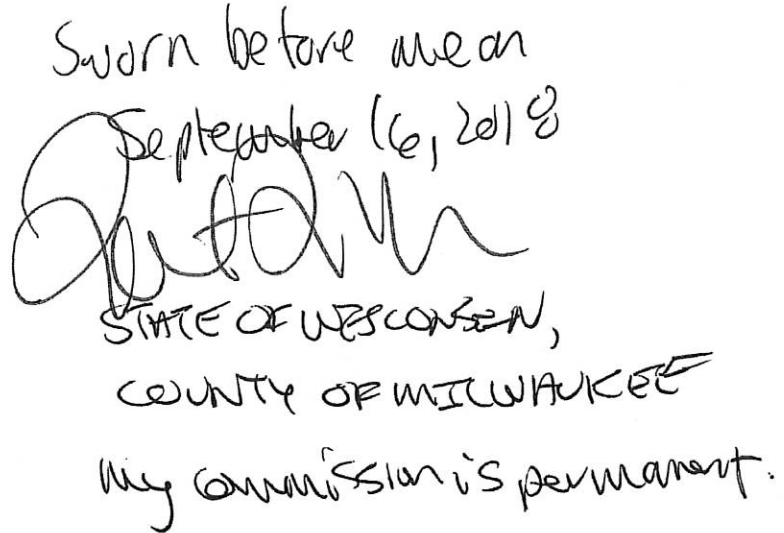 Sworn before me on
September 16, 2018
STATE OF WISCONSIN,
COUNTY OF MILWAUKEE
my commission is permanent.